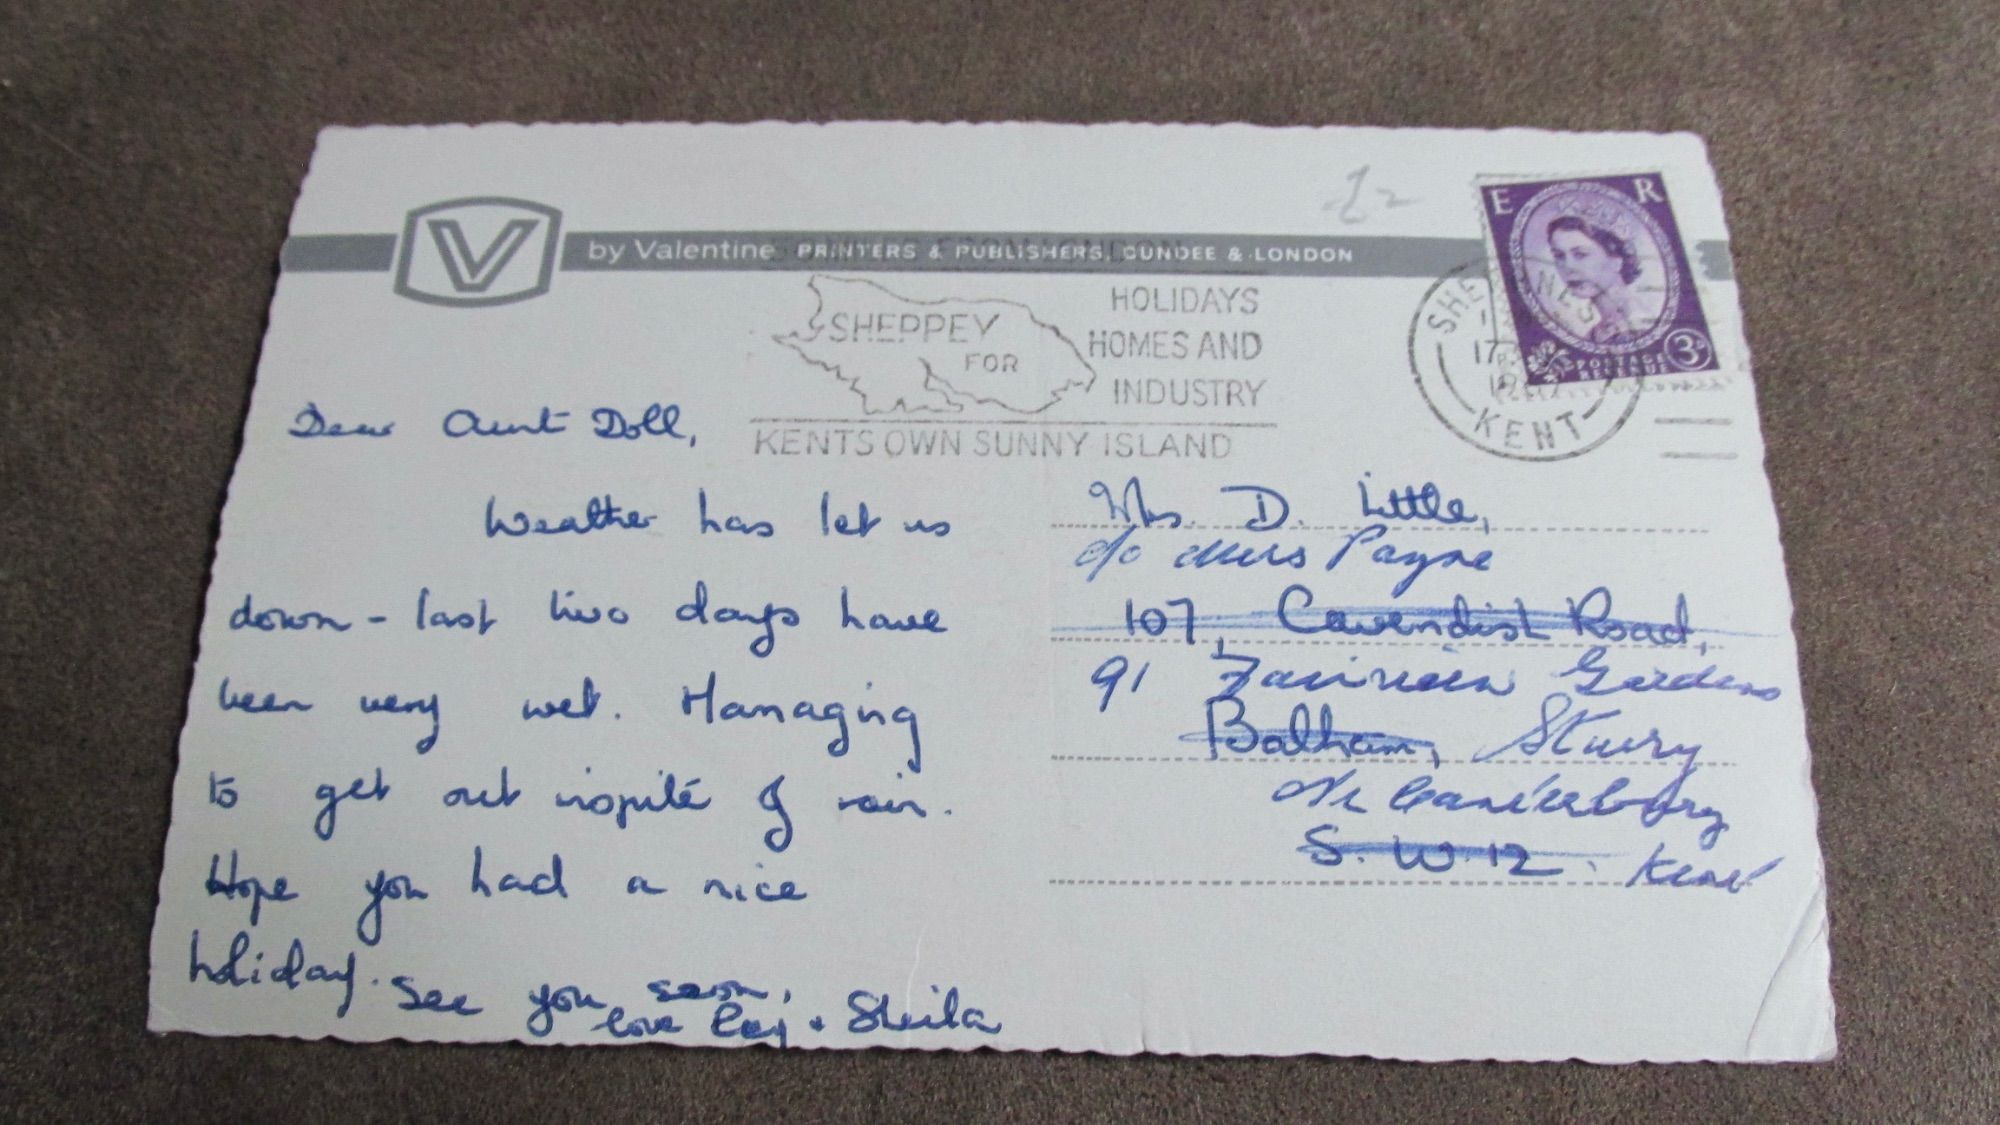 £2
V by Valentine PRINTERS & PUBLISHERS, DUNDEE & LONDON
E R
POSTAGE REVENUE 3D
SHEERNESS
KENT
SHEPPEY
FOR
HOLIDAYS
HOMES AND
INDUSTRY
KENTS OWN SUNNY ISLAND
Dear Aunt Doll,
Weather has let us
down - last two days have
been very wet. Managing
to get out inspite of rain.
Hope you had a nice
holiday. See you soon,
love Ray + Sheila
Mrs. D. Little,
c/o Mrs Payne
107, Cavendish Road,
91 Gardens
Balham, Sturry
Nr Canterbury
S. W. 12. Kent